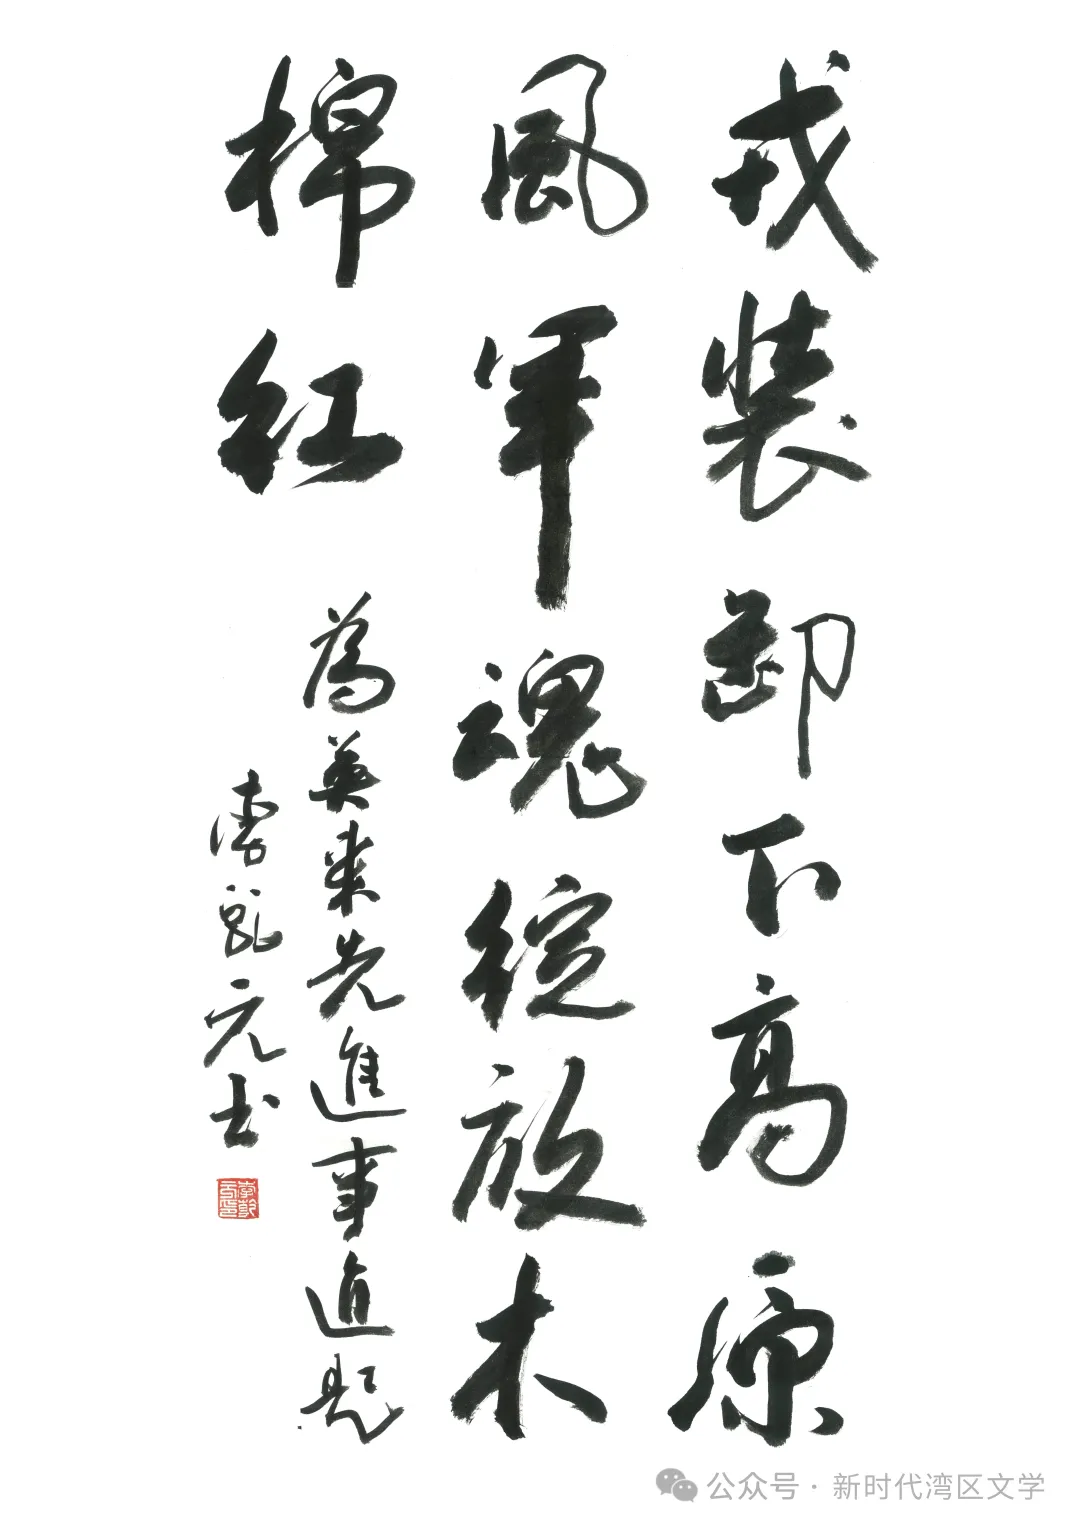 戎装卸下高原
風军魂绽放木
棉红
為英来先進事迹题
李乾元书
公众号·新时代湾区文学